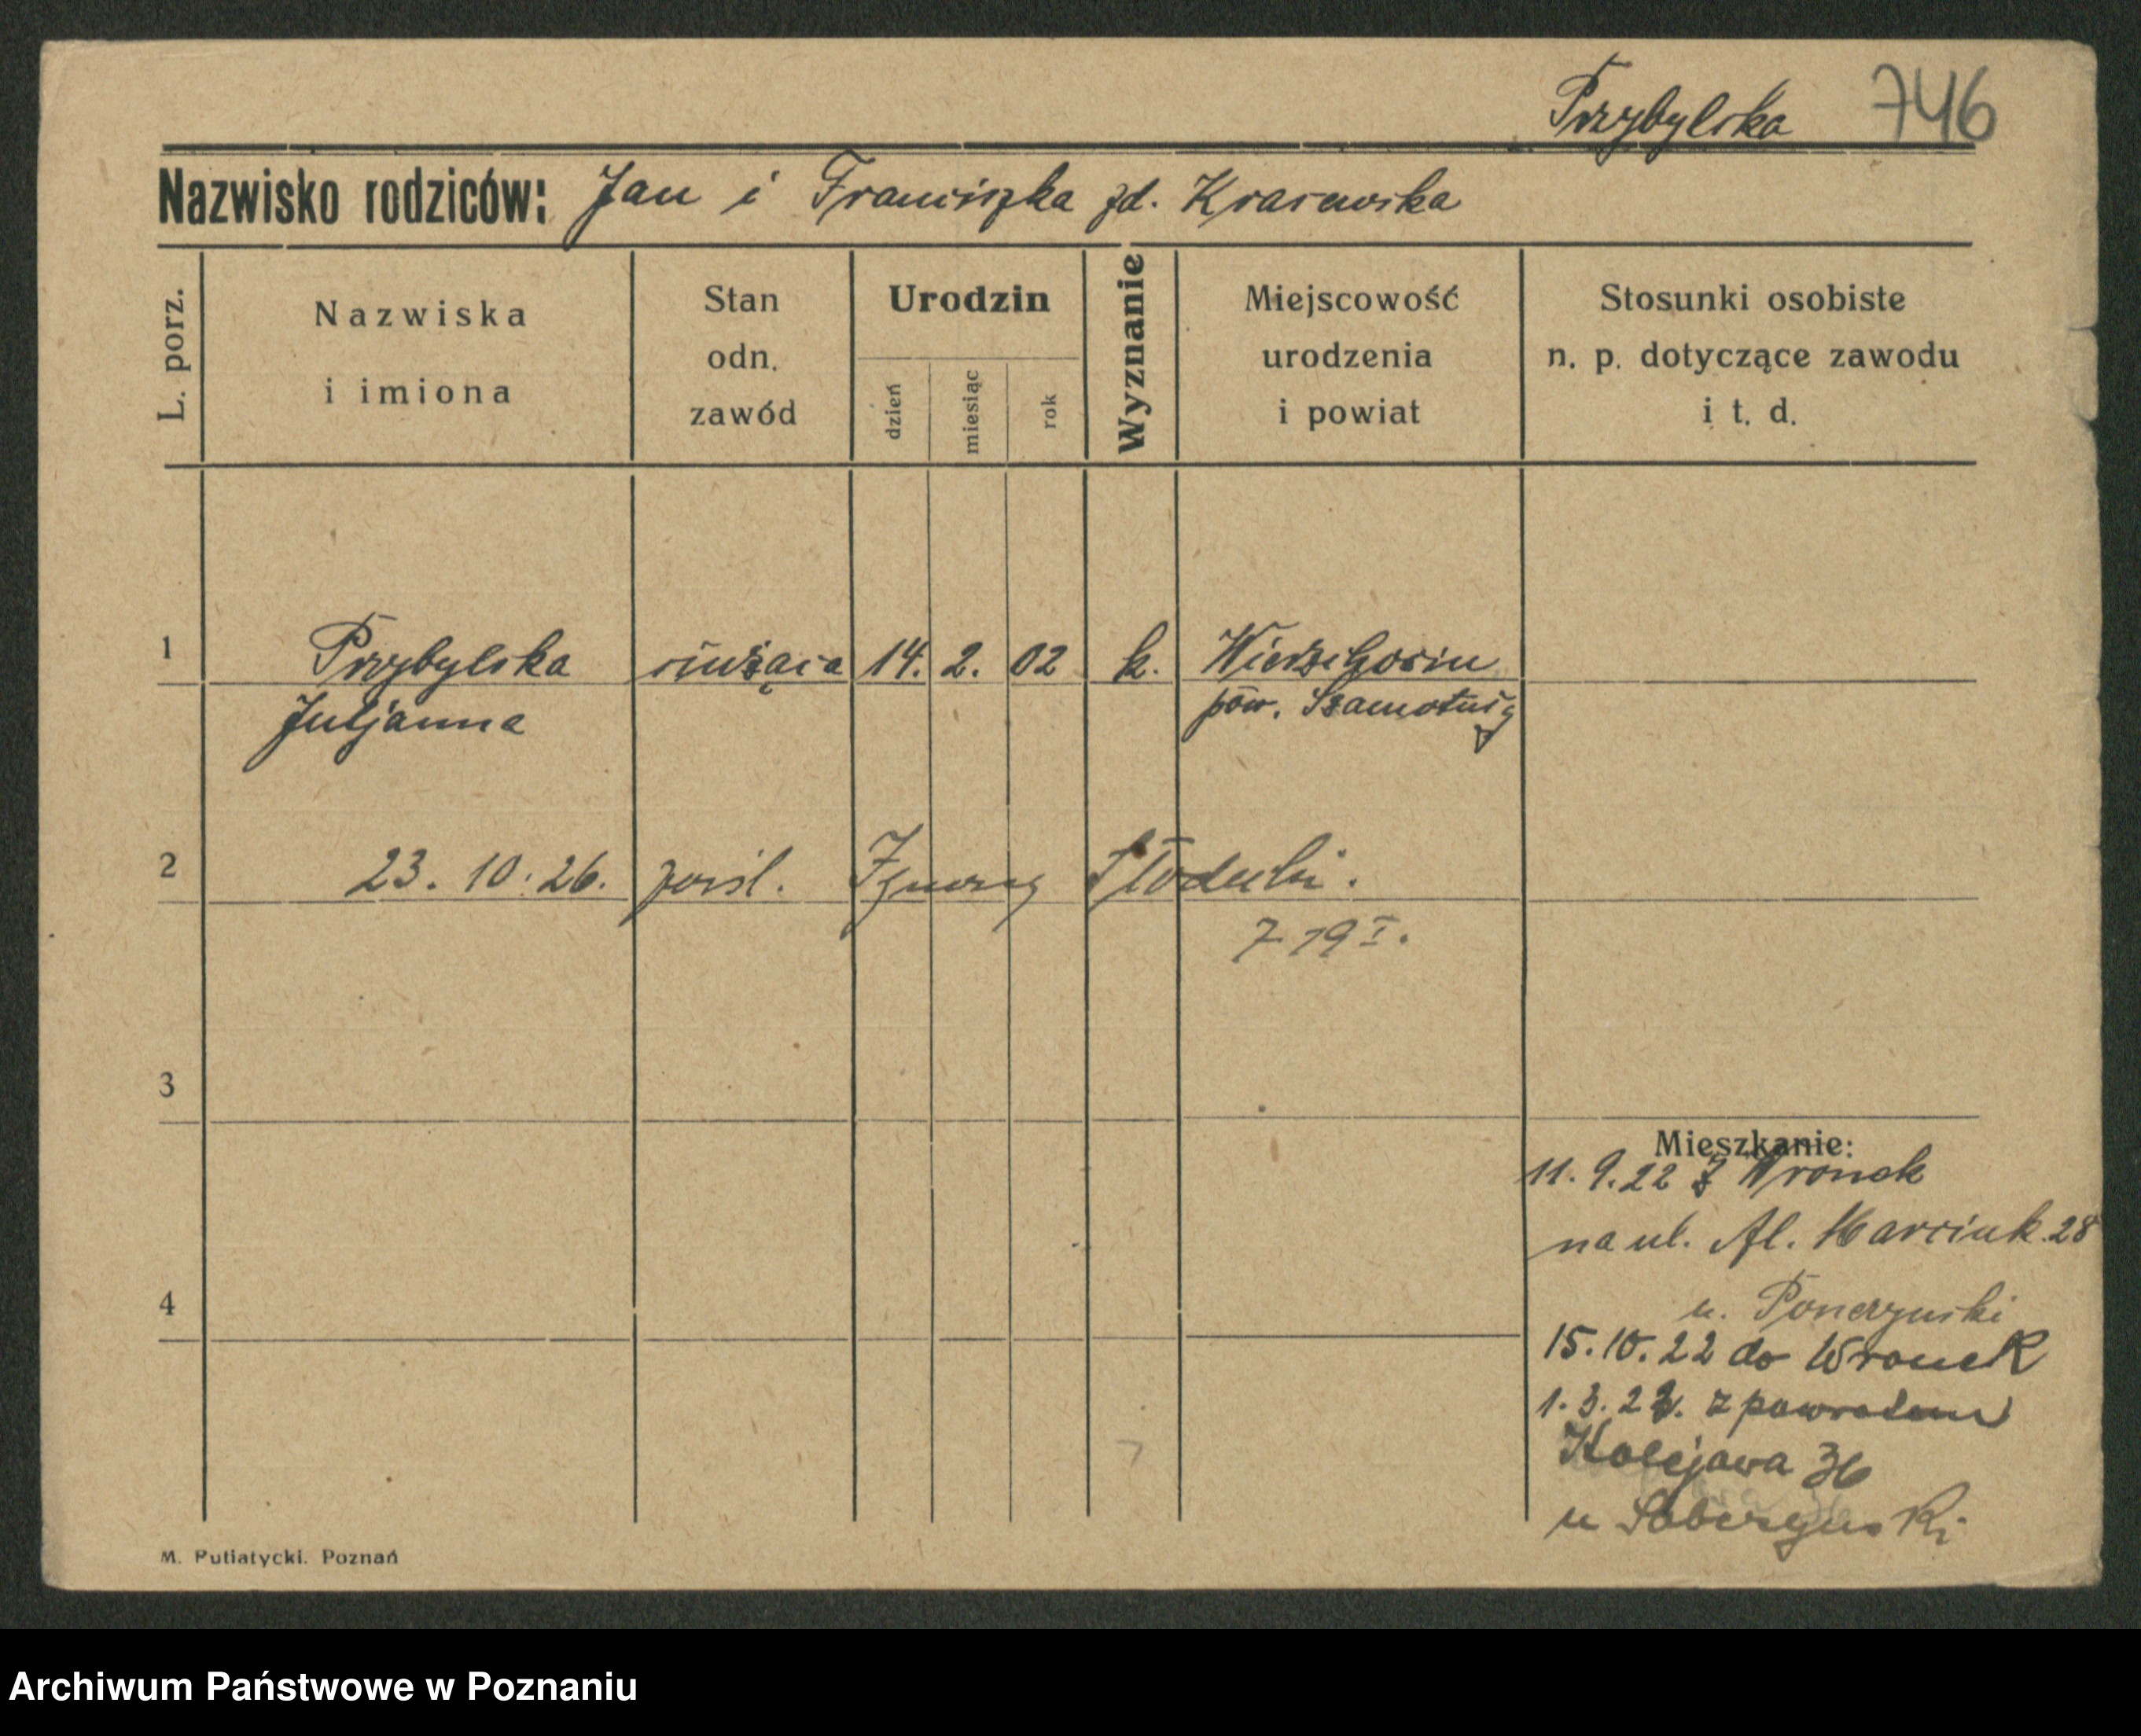 Przybylska 746
Nazwisko rodziców: Jan i Franciszka zd. Krasewska
L. porz.
Nazwiska
i imiona
Stan
odn.
zawód
Urodzin
dzień
miesiąc
rok
Wyznanie
Miejscowość
urodzenia
i powiat
Stosunki osobiste
n. p. dotyczące zawodu
i t. d.
1 Przybylska służąca 14. 2. 02 k.
Juljanna pow. Szamotuły
2 23. 10. 26. pośl. Ignacy
7 19 I.
3
Mieszkanie:
11. 9. 22 z Wronek
na ul. Al. Marcink. 28
4
u.
15. 10. 22 do Wronek
z powrotem
Kolejowa 36
u
M. Putiatycki. Poznań
Archiwum Państwowe w Poznaniu